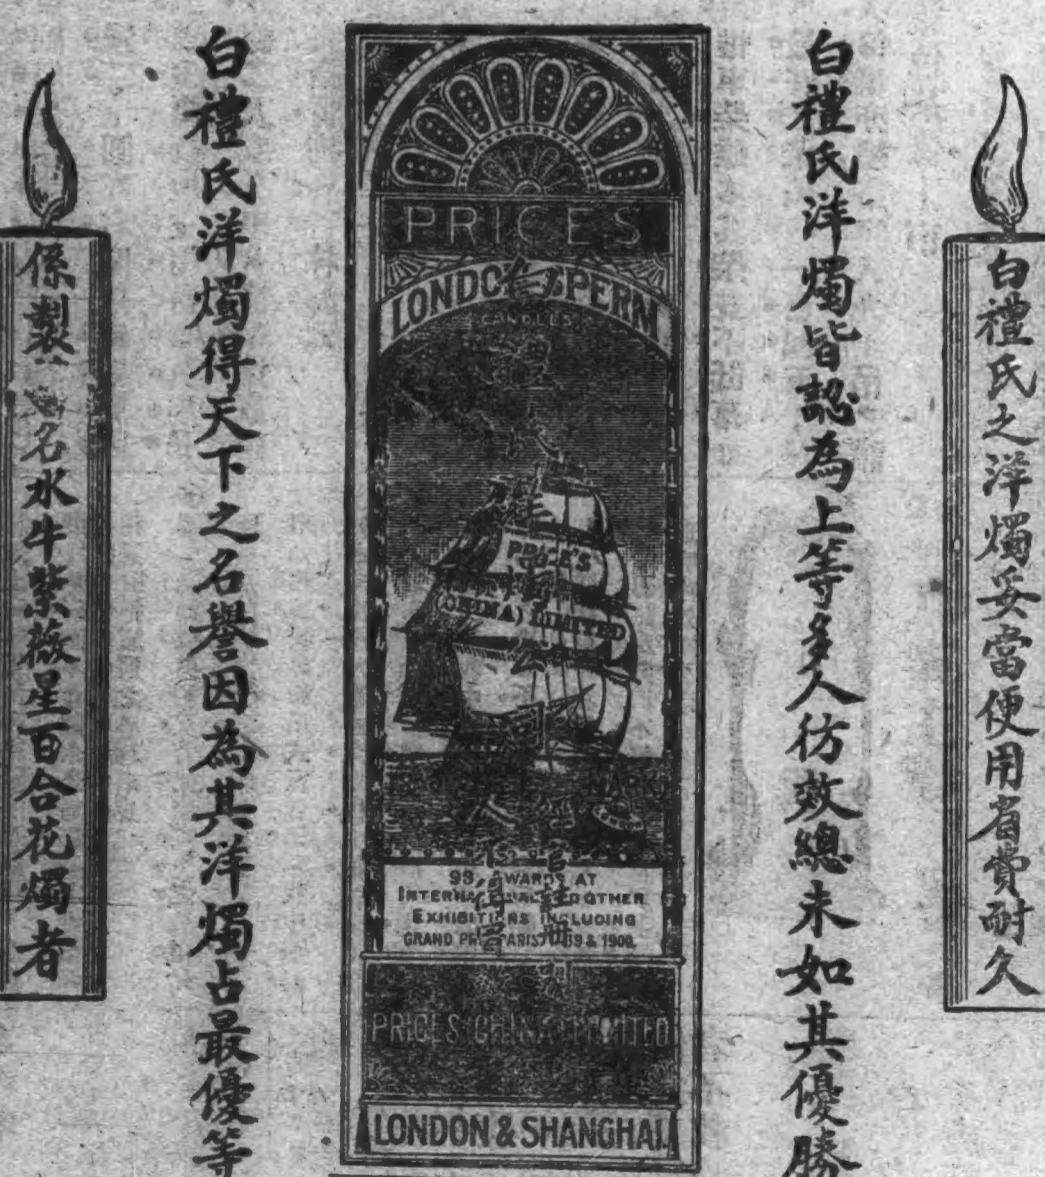 白禮氏之洋燭妥當便用省費耐久
白禮氏洋燭皆認為上等多人彷效總未如其優勝
PRICES
LONDON SPERM
CANDLES
PRICE'S
(CHINA) LIMITED
MARK
93 AWARDS AT
INTERNATIONAL & OTHER
EXHIBITIONS INCLUDING
GRAND PRIX PARIS 1889 & 1900.
PRICES (CHINA) LIMITED
LONDON & SHANGHAI.
白禮氏洋燭公司
白禮氏洋燭得天下之名譽因為其洋燭占最優等
係製
名水牛紫薇星百合花燭者